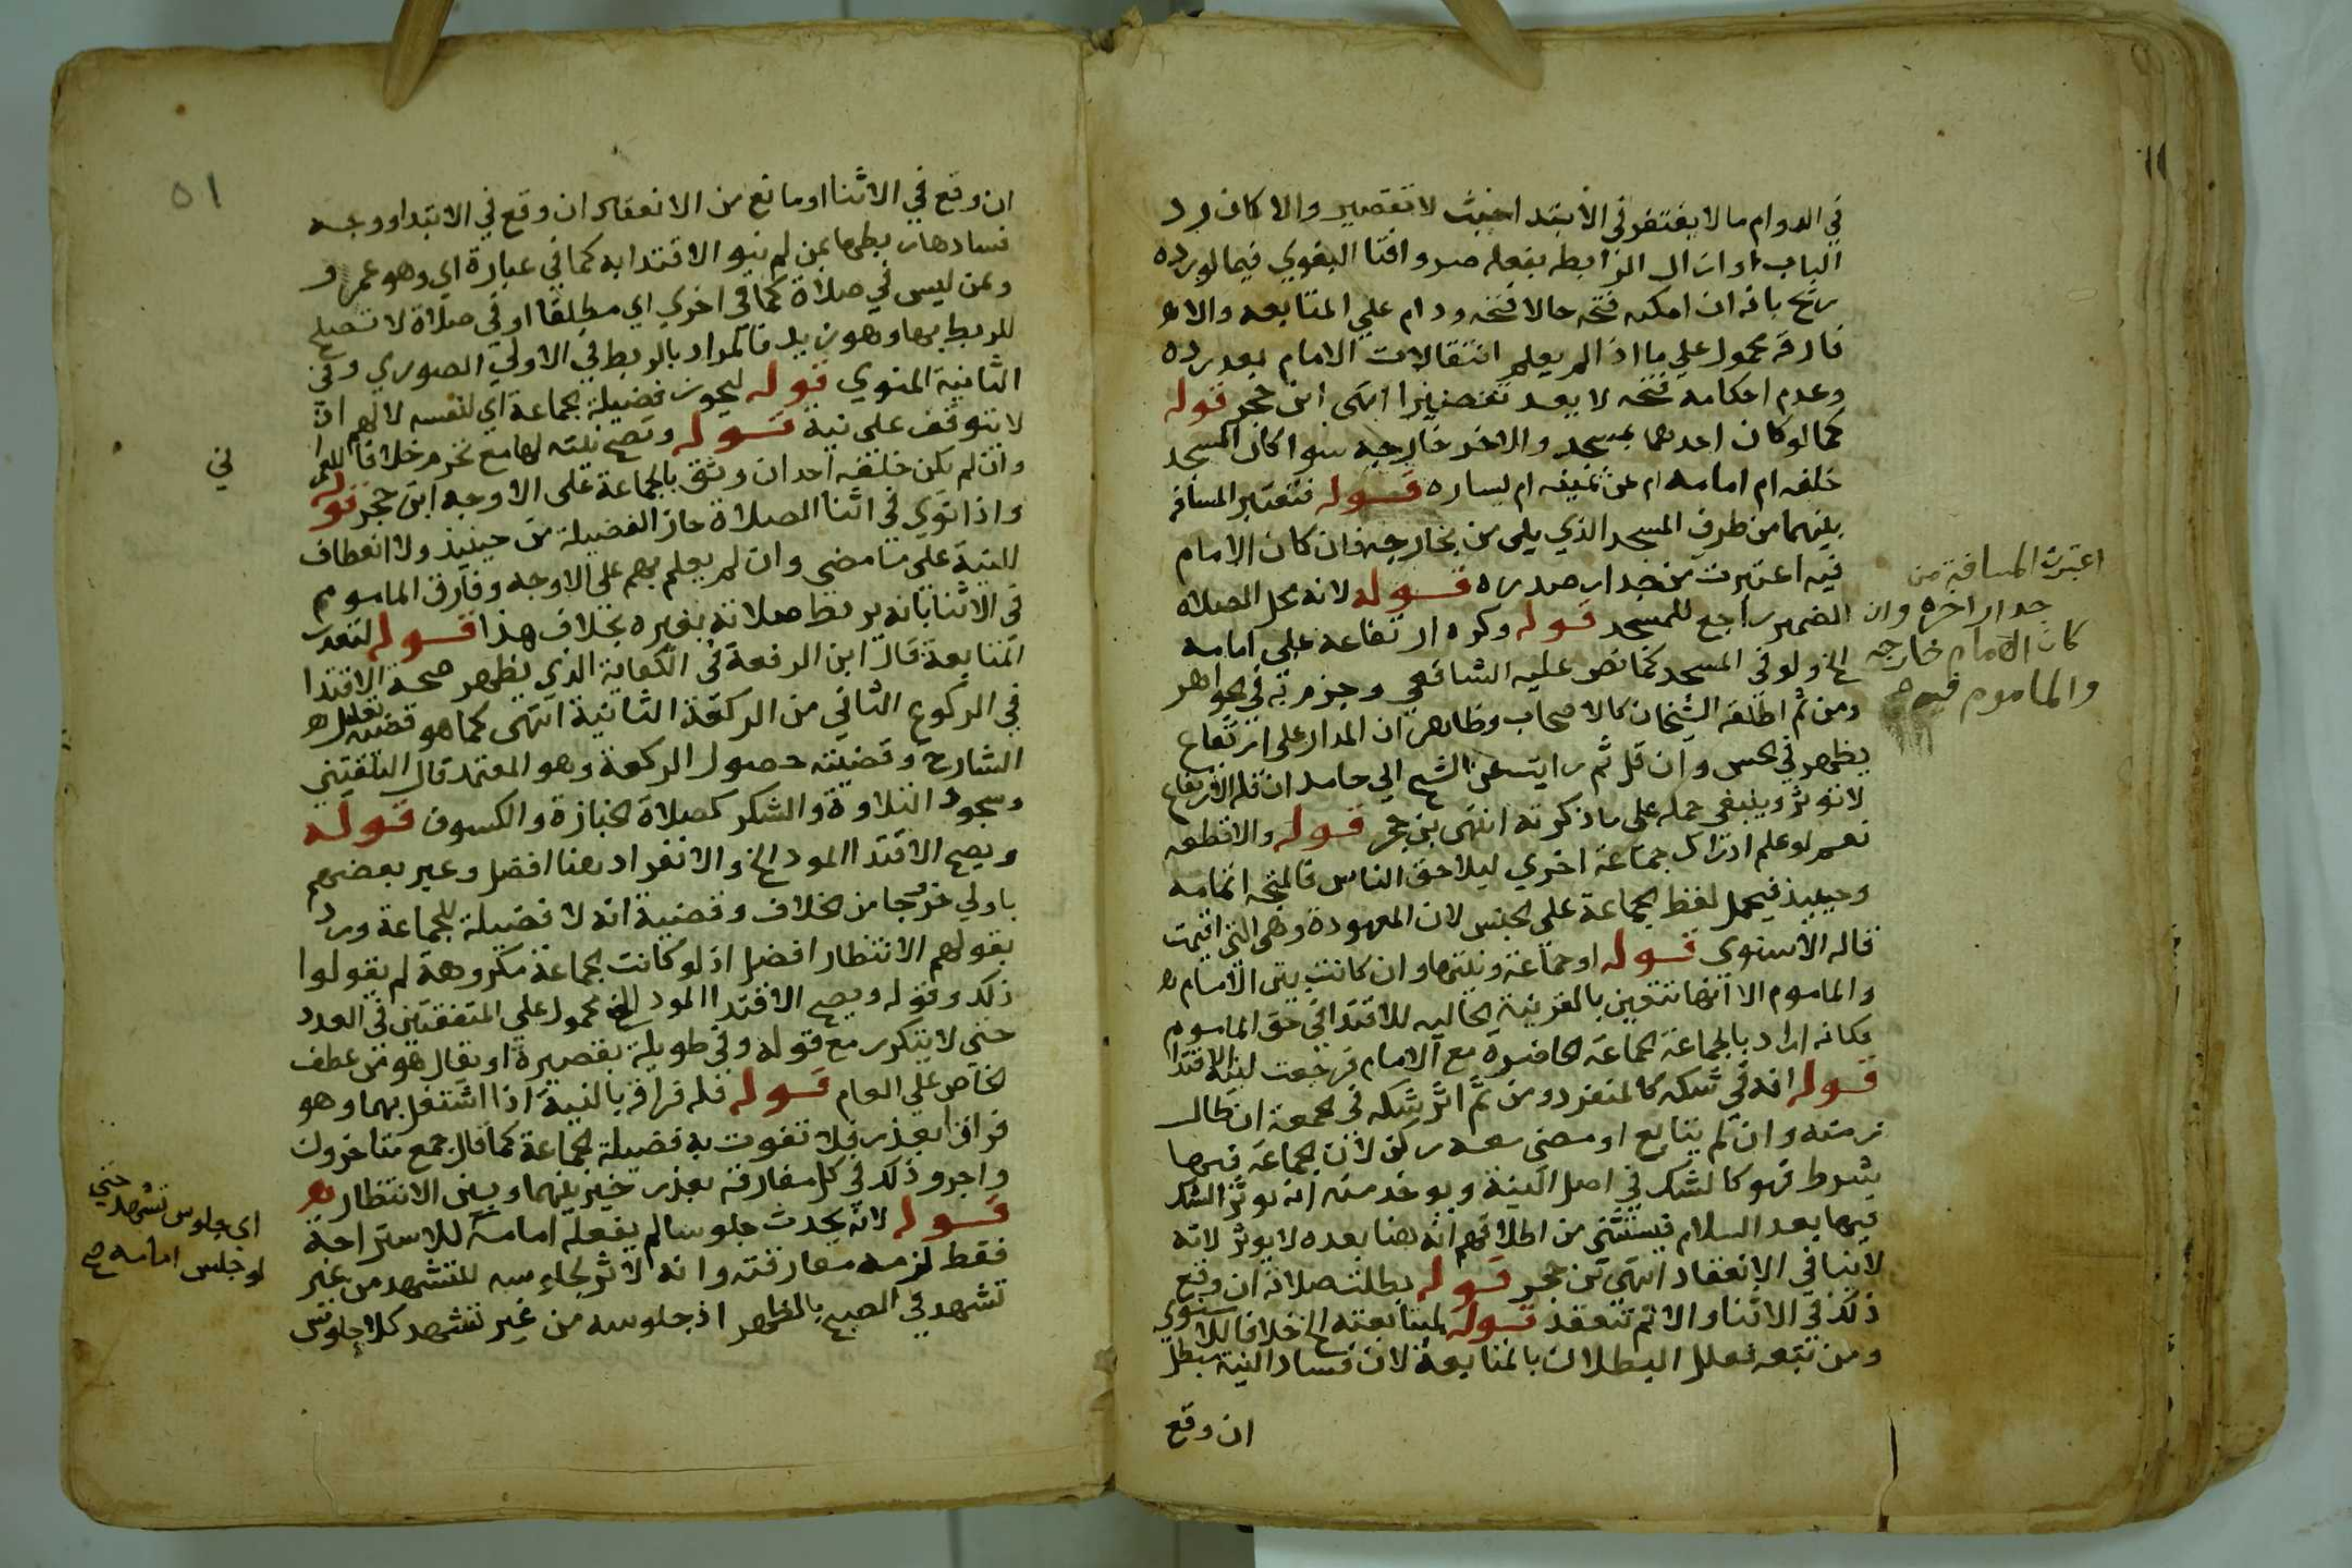 في الدوام ما لا يغتفر في الابتدا حيث لا تقصير والا كان رد
الباب او ازال الرابطه بفعله ضر وافتا البغوي فيما لو رده
ريح بانه ان امكنه فتحه حالا فتحه ودام علي المتابعه والا
فارقه محمول علي ما اذا لم يعلم انتقالات الامام بعد رده
وعدم احكامه فتحه لا يعد تقصيرا انتهى ابن حجر قوله
كما لو كان احدهما بمسجد والاخر خارجه سوا كان المسجد
خلفه ام امامه ام عن يمينه ام يساره قوله فتعتبر المسافه
بينهما من طرف المسجد الذي يلي من بخارجه فان كان الامام
فيه اعتبرت من جدار صدره قوله لانه محل الصلاه
اعتبرت المسافة من
جدار اخره وان
كان الامام خارجه
والماموم فيه صح
الضمير راجع للمسجد قوله وكره ارتفاعه علي امامه
الخ ولو في المسجد كما نص عليه الشافعي وجزم به في الجواهر
ومن ثم اطلقه الشيخان كالاصحاب وظاهره ان المدار على ارتفاع
يظهر في الحس وان قل ثم رايت عن الشيخ ابي حامد ان قلة الارتفاع
لا تؤثر وينبغي حمله على ما ذكرته انتهى بن حجر قوله والا قطعه
نعم لو علم ادراك جماعة اخري ليلاحق الناس فالمتجه اتمامه
وحينيذ فيحمل لفظ الجماعة على الجنس لان المعهودة وهي التي اقيمت
قاله الاسنوي قوله او جماعة ونيتها وان كانت بين الامام
والماموم الا انها تتعين بالقرينة الحاليه للاقتدا في حق الماموم
فكانه اراد بالجماعة الجماعة الحاضرة مع الامام فرجعت لنية الاقتدا
قوله انه في شكه كالمنفرد ومن ثم اثر شكه في الجمعة ان طال
زمنه وان لم يتابع او مضى معه ركن لان الجماعة فيها
شرط فهو كالشك في اصل النية ويوخذ منه انه يوثر الشك
فيها بعد السلام فيستثني من اطلاقهم انه هنا بعده لا يوثر لانه
لا ينافي الانعقاد انتهى بن حجر قوله بطلت صلاته ان وقع
ذلك في الاثنا والا لم تنعقد قوله لمتابعته الخ خلافا للاسنوي
ومن تبعه فعلل البطلان بالمتابعة لان فساد النية مبطل
ان وقع
٥١
ان وقع في الاثنا او مانع من الانعقاد ان وقع في الابتدا ووجه
فسادها ربطها بمن لم ينو الاقتدا به كما في عبارة اي وهو عمرو
وبمن ليس في صلاة كما في اخري اي مطلقا او في صلاة لا تصلح
للربط بها وهو زيد فالمراد بالربط في الاولي الصوري وفي
الثانية المنوي قوله ليحوز فضيلة الجماعة اي لنفسه لا لهم اذ
لا تتوقف على نية قوله وتصح نيته لها مع تحرمه خلافا للعمراني
وان لم يكن خلفه احد ان وثق بالجماعة على الاوجه ابن حجر قوله
واذا نوي في اثنا الصلاة حاز الفضيلة من حينيذ ولا انعطاف
للنية على ما مضى وان لم يعلم بهم على الاوجه وفارق الماموم
في الاثنا بانه يربط صلاته بغيره بخلاف هذا قوله لتعذر
المتابعة قال ابن الرفعة في الكفاية الذي يظهر صحة الاقتدا
في الركوع الثاني من الركعة الثانية انتهى كما هو قضية تعليل
الشارح وقضيته حصول الركعة وهو المعتمد قال البلقيني
وسجود التلاوة والشكر كصلاة الجنازة والكسوف قوله
ويصح الاقتدا المود الخ والانفراد هنا افضل وعبر بعضهم
باولي خروجا من الخلاف وقضية انه لا فضيلة للجماعة ورد
بقولهم الانتظار افضل اذ لو كانت الجماعة مكروهة لم يقولوا
ذلك وقوله ويصح الاقتدا المود الخ محمول علي المتفقتين في العدد
حتي لا يتكرر مع قوله وفي طويلة بقصيرة او يقال هو من عطف
الخاص علي العام قوله فله فراقه بالنية اذا اشتغل بهما وهو
فراق بعذر فلا تفوت به فضيلة الجماعة كما قال جمع متاخرون
واجرو ذلك في كل مفارقة بعذر خير بينهما وبين الانتظار
قوله لانه يحدث جلوسا لم يفعله امامه للاستراحة
فقط لزمه مفارقته وانه لا اثر لجلوسه للتشهد من غير
تشهد في الصبح بالظهر اذ جلوسه من غير تشهد كلا جلوس
ني
اي جلوس تشهد حتي
لو جلس امامه صح